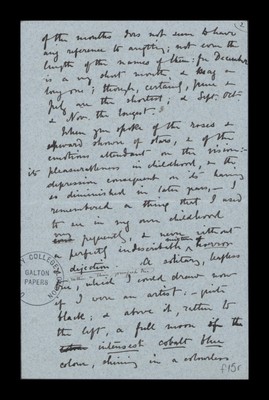 2
of the months does not seem to have
any reference to anything; not even the
length of the names of them: for December
is a very short month, & May a
long one; though, certainly, June &
July are the shortest, & Sept. Oct.
& Nov. the longest.
When you spoke of the roses &
shower of stars, & of the
emotions attendant on the vision:
its pleasurableness in childhood, & the
depression consequent on its having
so diminished in later years,— I
remembered a thing that I used
to see in my own childhood
frequently, & never without
a perfectly indescribable horror
& dejection. A solitary, leafless
tree, which I could draw now
if I were an artist.— quite
black; & above it, rather to
the left, a full moon of the
intensest cobalt blue
colour, shining in a colourless
COLLEGE
GALTON
PAPERS
LONDON
f15r